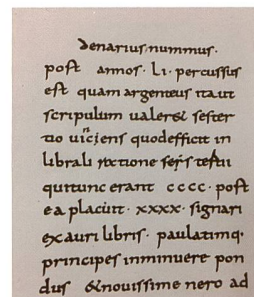 Denarius nummus·
post annos· Li· percussus
est quam argenteus ita ut
scripulum valeret sester
tio viciens quod efficit in
librali
qui tunc erant cccc· post
ea placuit· xxxx· signari
ex auri libris· paulatimq·
principes inminuere pon
dus &novissime nero ad